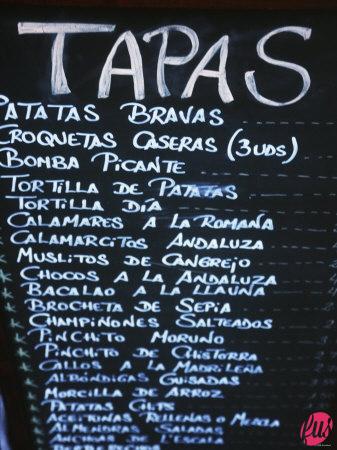 TAPAS
PATATAS BRAVAS
CROQUETAS CASERAS (3UDS)
BOMBA PICANTE
TORTILLA DE PATATAS
TORTILLA DÍA
CALAMARES A LA ROMANA
CALAMARCITOS ANDALUZA
MUSLITOS DE CANGREJO
CHOCOS A LA ANDALUZA
BACALAO A LA LLAUNA
BROCHETA DE SEPIA
CHAMPIÑONES SALTEADOS
PINCHITO MORUNO
PINCHITO DE CHISTORRA
CALLOS A LA MADRILEÑA
ALBÓNDIGAS GUISADAS
MORCILLA DE ARROZ
PATATAS CHIPS
ACEITUNAS RELLENAS O MEZCLA
ALMENDRAS SALADAS
ANCHOAS DE L'ESCALA